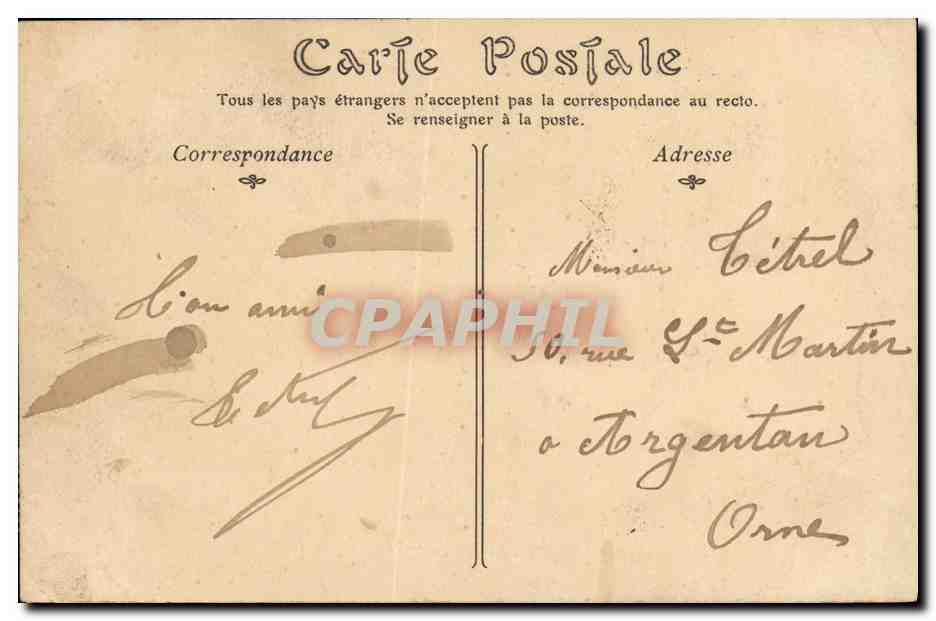 Carte Postale
Tous les pays étrangers n'acceptent pas la correspondance au recto.
Se renseigner à la poste.
Correspondance
Adresse
ami
Monsieur Tétrel
30, rue St Martin
a Argentan
Orne
CPAPHIL